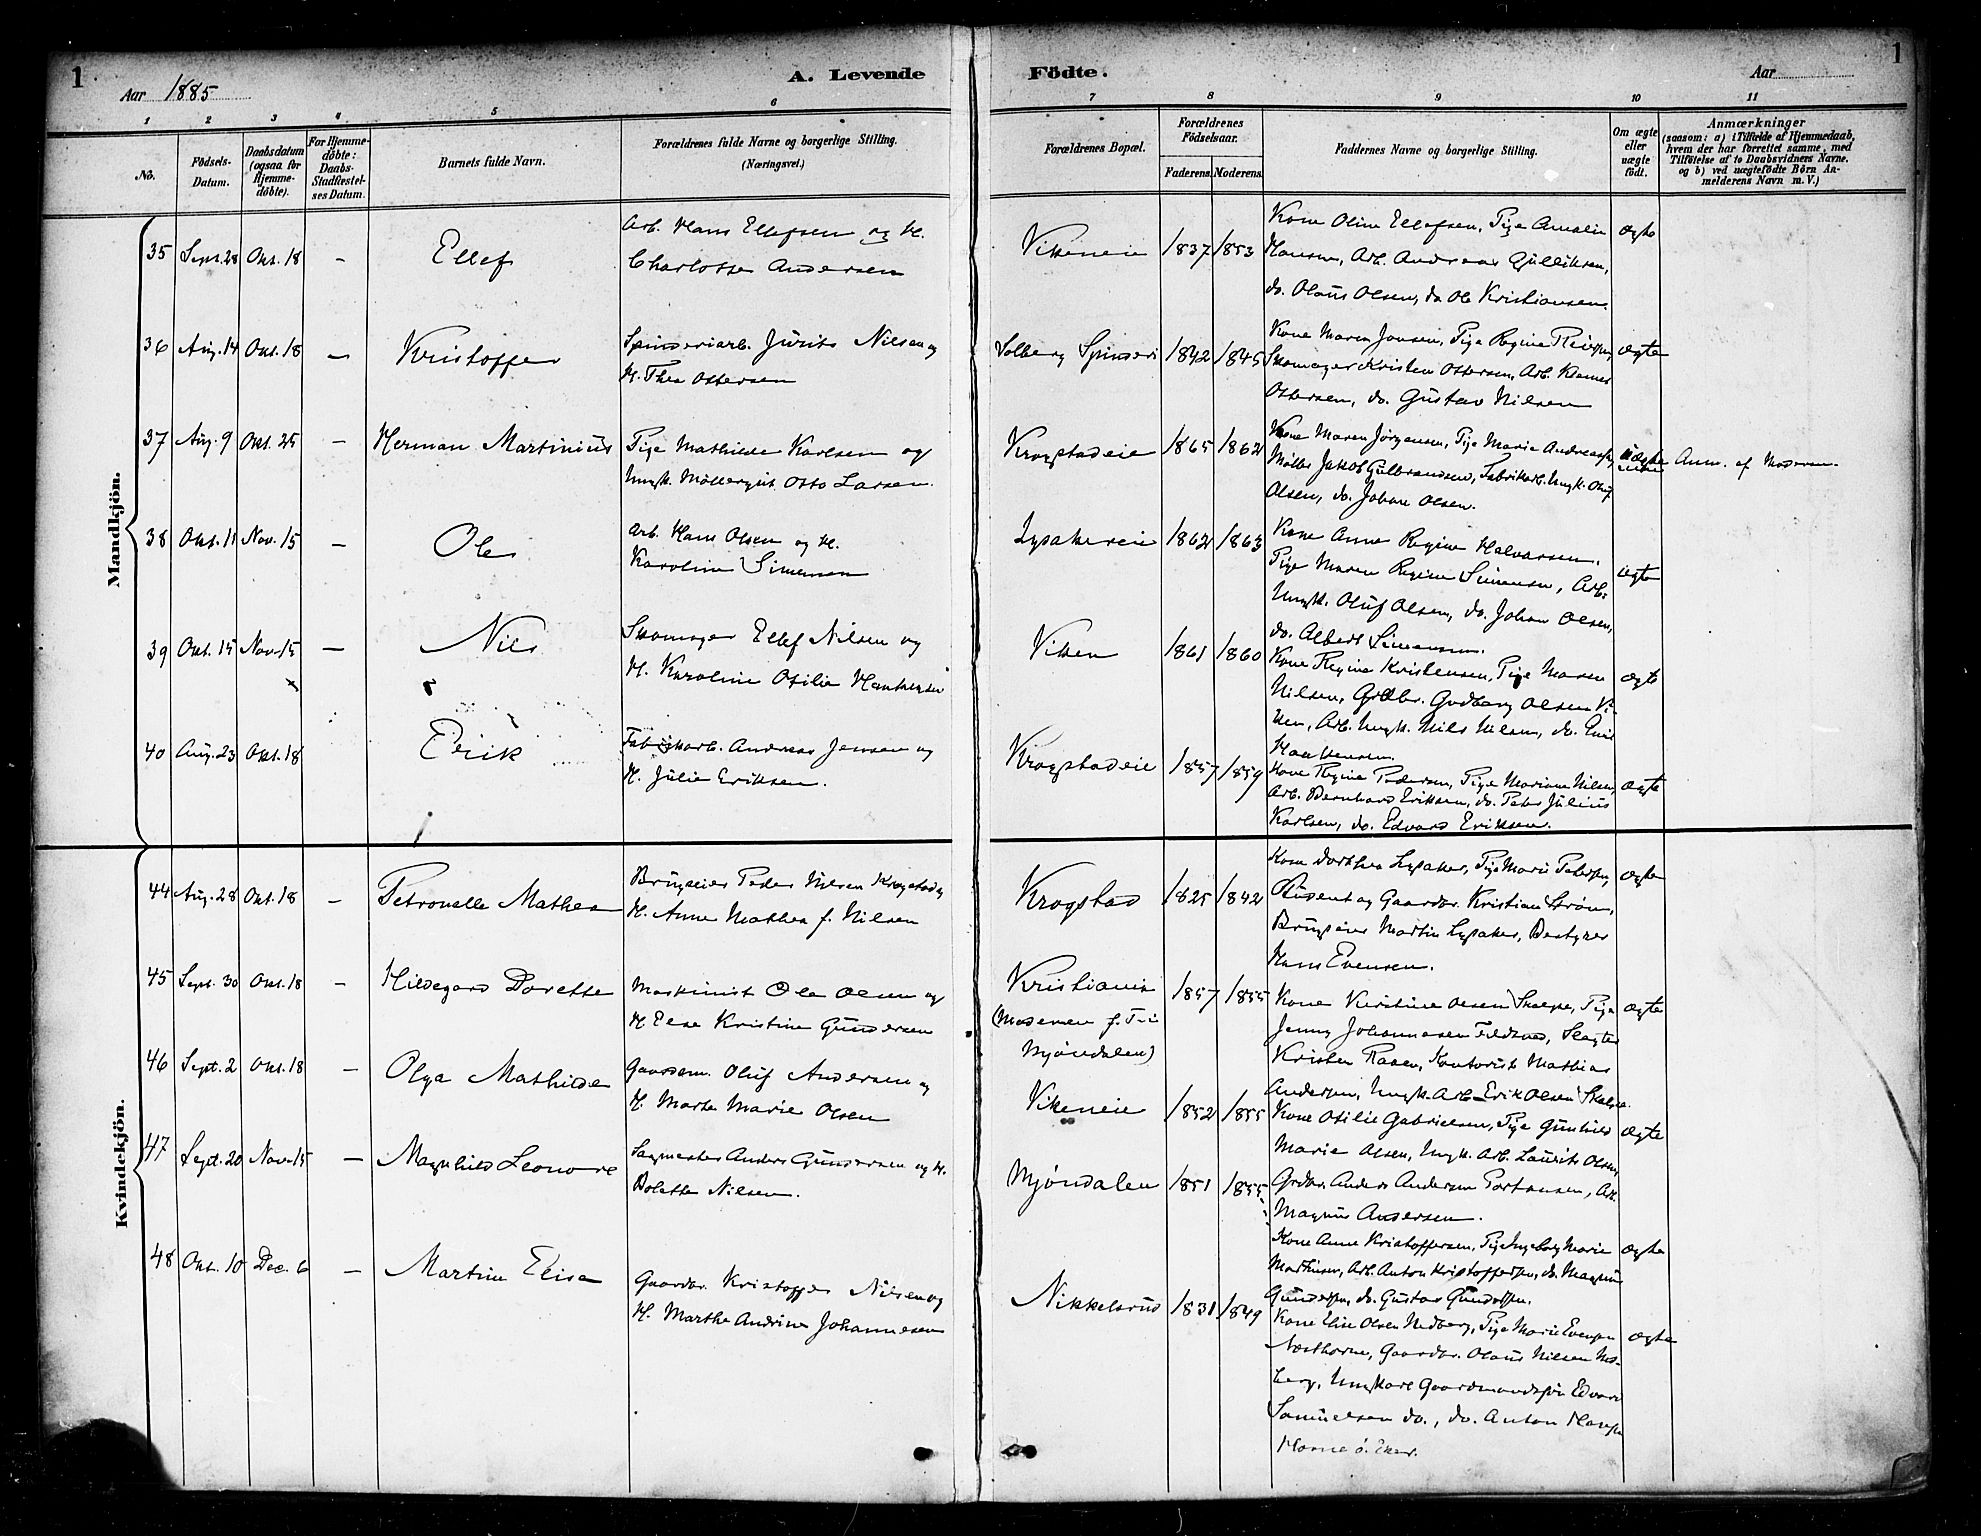 1
A. Levende
Födte.
Aar
1
Aar 1885
1 2 3 4 5 6 7 8 9 10 11
No.
Födsels-
Datum.
Daabsdatum
(ogsaa for
Hjemme-
döbte).
For Hjemme-
döbte:
Daabs-
Stadfæstel-
ses Datum.
Barnets fulde Navn.
Forældrenes fulde Navne og borgerlige Stilling.
(Næringsvei.)
Forældrenes Bopæl.
Forældrenes
Födselsaar.
Faderens. Moderens.
Faddernes Navne og borgerlige Stilling.
Om ægte
eller
uægte
født.
Anmærkninger
(saasom: a) i Tilfælde af Hjemmedaab,
hvem der har forrettet samme, med
Tilföielse af to Daabsvidners Navne.
og b) ved uægtefödte Börn An-
melderens Navn m. V.)
Mandkjön.
35 Sept. 28 Okt. 18 - Ellef
Arb. Hans Ellefsen og H.
Charlotte Andersen
Vikeneie 1837 1853
Kone Oline Ellefsen, Pige Amalie
Hansen, Arb. Andreas Gulliksen,
do. Olaus Olsen, do Ole Kristiansen.
ægte
36 Aug. 14 Okt. 18 - Kristoffer
Spinneriarb. Jürits Nilsen og
H. Thea Ottersen
Solberg Spinneri 1842 1845
Kone Maren Jonsen, Pige Regine
Skomager Kristen Ottersen, Arb.
Ottersen, do. Gustav Nilsen
ægte
37 Aug. 9 Okt. 25 - Herman Martinius
Pige Mathilde Karlsen og
Ungk. Möllergut Otto Larsen.
Krogstadeie 1865 1862
Kone Maren Jörgensen, Pige Marie Andreassen,
Möller Jakob Gulbrandsen, Fabrikarb. Ungk. Oluf
Olsen, do. Johan Olsen.
uægte Anm. af Moderen.
38 Okt. 11 Nov. 15 - Ole
Arb. Hans Olsen og H.
Karoline Simensen
Lysakereie 1862 1863
Kone Anne Regine Halvorsen.
Pige Maren Regine Simensen, Arb.
Ungk. Oluf Olsen, do. Johan Olsen,
do. Albert Simensen.
ægte
39 Okt. 15 Nov. 15 - Nils
Skomager Ellef Nilsen og
H. Karoline Otilie
Viken 1861 1860
Kone Regine Kristensen, Pige Maren
Nilsen, Grdbr. Gudberg Olsen Vi-
ken, Arb. Ungk. Nils Nilsen, do.
ægte
40 Aug. 23 Okt. 18 Erik
Fabrikarb. Andreas Jensen og
H. Julie Eriksen.
Krogstadeie 1857 1859
Kone Regine Pedersen, Pige Mariane Nilsen,
Arb. Bernhard Eriksen, do. Peter Julius
Karlsen, do. Edvard Eriksen.
ægte
Kvindekjön.
44 Aug. 28 Okt. 18 - Petronelle Mathea
Brugseier Peder Nilsen Krogstad og
H. Anne Mathea f. Nilsen
Krogstad 1825 1842
Kone Dorthea Lysaker, Pige Marie Petersen,
Student og Gaardbr. Kristian Ström,
Brugseier Martin Lysaker, Bestyrer
Hans Evensen.
ægte
45 Sept. 30 Okt. 18 - Hildegard Dorette
Maskinist Ole Olsen og
H Else Kristine Gundersen
Kristiania
(Moderen f. Tii
Mjöndalen)
1857 1855
Kone Kirstine Olsen Skalpe, Pige
Jenny Johannesen, Slagter
Kristen Raaen, Kontorist Mathias
Andersen, Ungk. Arb. Erik Olsen Skalpe.
ægte
46 Sept. 2 Okt. 18 - Olga Mathilde
Gaardm. Oluf Andersen og
H. Marte Marie Olsen
Vikeneie 1852 1855
Kone Otilie Gabrielsen, Pige Gunhild
Marie Olsen, Ungk. Arb. Laurits Olsen,
Grdbr. Anders Andersen, Arb.
Magnus Andersen.
ægte
47 Sept. 20 Nov. 15 - Magnhild Leonore
Sagmester Anders Gundersen og H.
Bolette Nilsen.
Mjöndalen 1851 1855
Kone Anne Kristoffersen, Pige Ingeborg Marie
Mathisen, Arb. Anton Kristoffersen, do. Magnus
Gundersen, do. Gustav Gundersen.
ægte
48 Okt. 10 Dec. 6 - Martine Elise
Gaardbr. Kristoffer Nilsen og
H. Marthe Andrine Johannesen
Nikkelsrud 1831 1849
Kone Elise Olsen Nedberg, Pige Marie Evensen
Gaardbr. Olaus Nilsen Ned-
berg, Ungkarl Gaardmandssön Edvard
Samuelsen do., do. Anton Hansen
Horne ö. Eker.
ægte